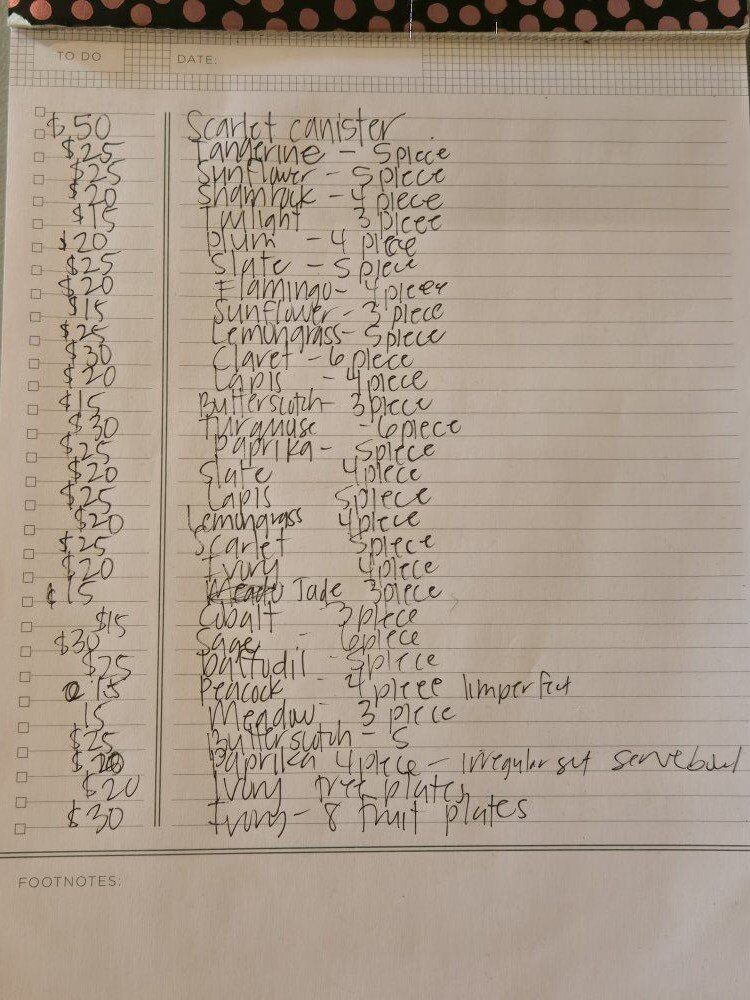 TO DO DATE:
$50 Scarlet canister
$25 Tangerine - 5 piece
$25 Sunflower - 5 piece
$20 Shamrock - 4 piece
$15 Twilight 3 piece
$20 Plum - 4 piece
$25 Slate - 5 piece
$20 Flamingo - 4 piece
$15 Sunflower - 3 piece
$25 Lemongrass - 5 piece
$30 Claret - 6 piece
$20 Lapis - 4 piece
$15 Butterscotch - 3 piece
$30 Turquoise - 6 piece
$25 Paprika - 5 piece
$20 Slate 4 piece
$25 Lapis 5 piece
$20 Lemongrass 4 piece
$25 Scarlet 5 piece
$20 Ivory 4 piece
$15 Jade 3 piece
$15 Cobalt 3 piece
$30 Sage - 6 piece
$25 Daffodil - 5 piece
15 Peacock - 4 piece 1 imperfect
15 Meadow - 3 piece
$25 Butterscotch - 5
$20 Paprika 4 piece - irregular set servebowl
$20 Ivory tree plates
$30 Ivory - 8 fruit plates
FOOTNOTES: